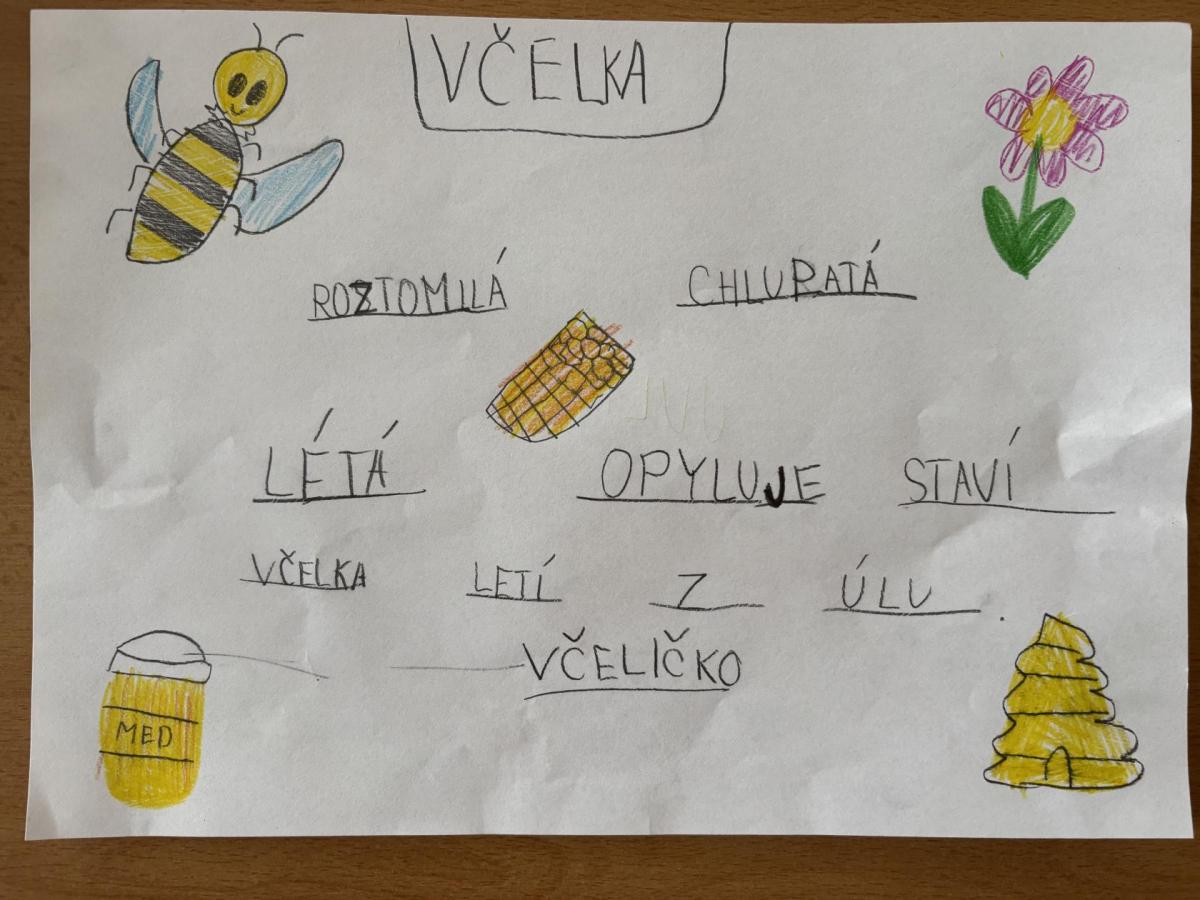 VČELKA
ROZTOMILÁ CHLUPATÁ
LÉTÁ OPYLUJE STAVÍ
VČELKA LETÍ Z ÚLU.
VČELIČKO
MED